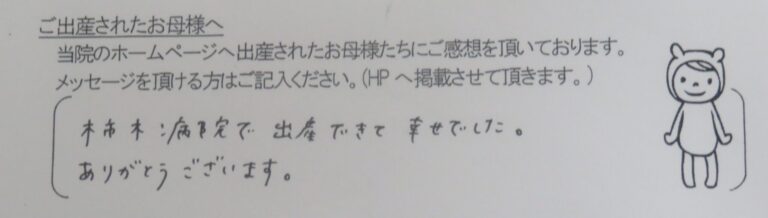 ご出産されたお母様へ
当院のホームページへ出産されたお母様たちにご感想を頂いております。
メッセージを頂ける方はご記入ください。(HPへ掲載させて頂きます。)
病院で 出産できて 幸せでした。
ありがとうございます。